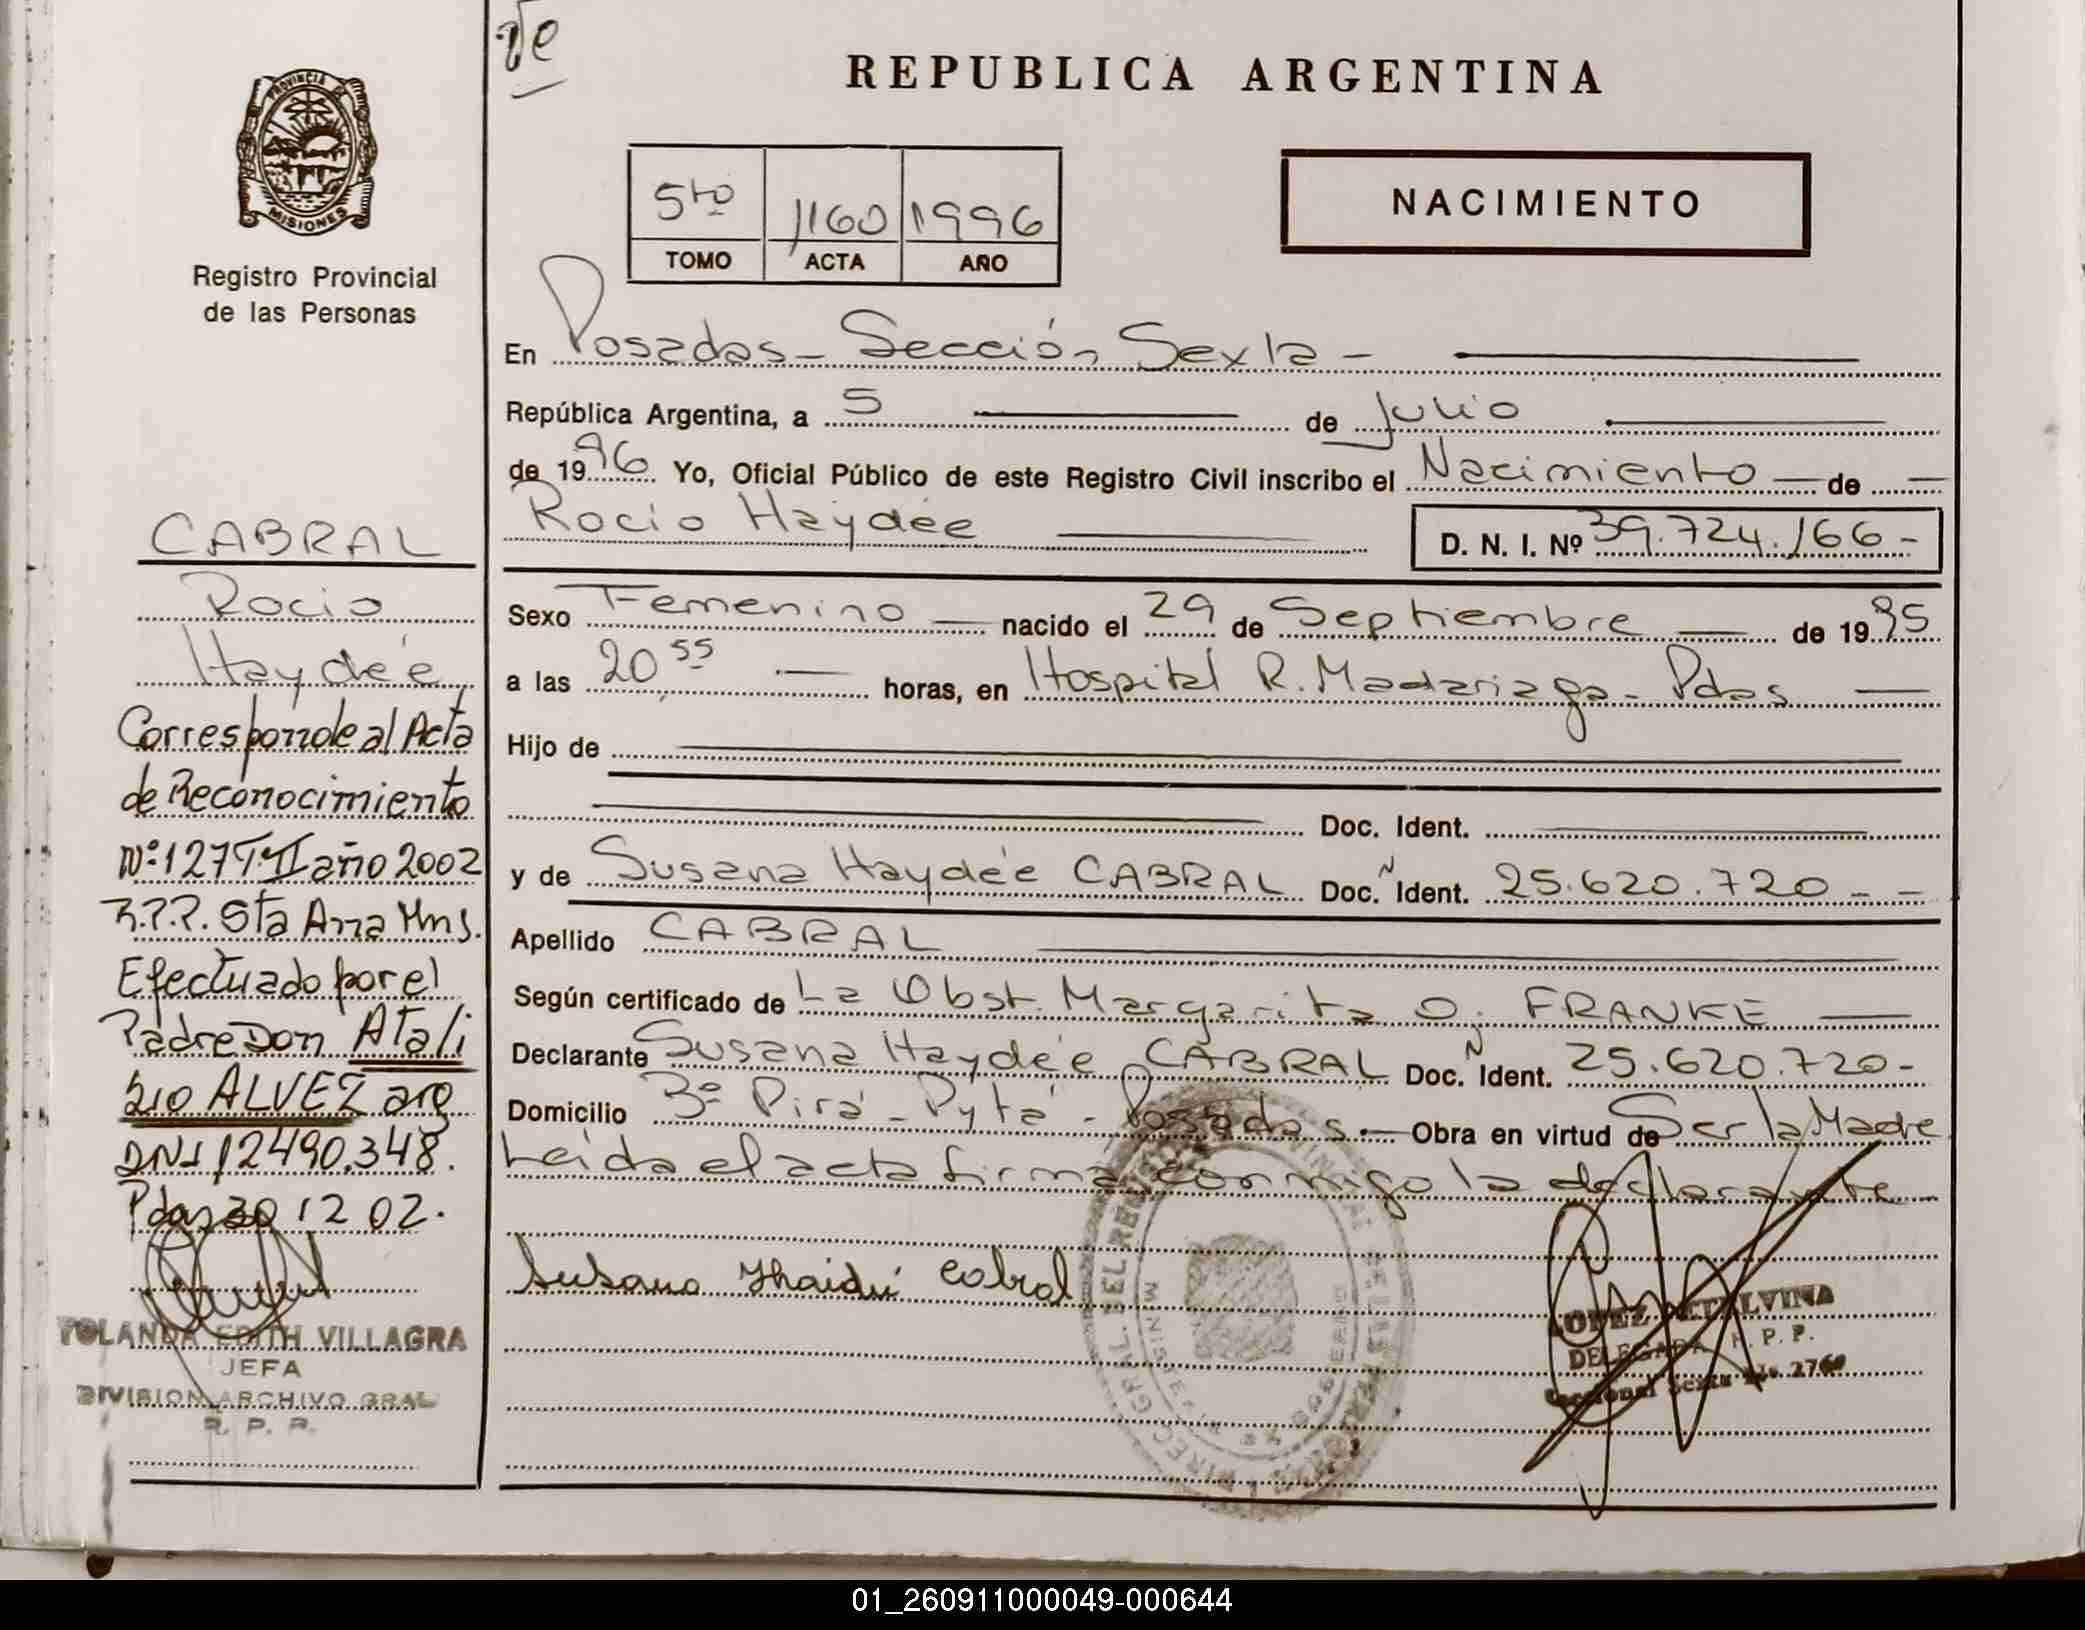 REPUBLICA ARGENTINA
PROVINCIA DE
MISIONES
Registro Provincial
de las Personas
5to 1160 1996
TOMO ACTA AÑO
NACIMIENTO
En Posadas - Sección Sexta -
República Argentina, a 5 de Julio
de 1996 Yo, Oficial Público de este Registro Civil inscribo el Nacimiento — de —
Rocio Haydée D. N. I. Nº 39.724.166-
Sexo Femenino — nacido el 29 de Septiembre — de 1995
a las 20,55 — horas, en Hospital R. Madariaga - Pdas —
Hijo de
Doc. Ident.
y de Susana Haydée CABRAL Doc. N Ident. 25.620.720 - -
Apellido CABRAL
Según certificado de La Obst. Margarita O. FRANKE —
Declarante Susana Haydée CABRAL Doc. N Ident. 25.620.720-
Domicilio Bº Pirá - Pytá - Posadas.— Obra en virtud de Ser la Madre
Leida el acta firma conmigo la declarante
Susana Cabral
LOPEZ ETELVINA
DELEGADA R. P. P.
Seccional Sexta
CABRAL
Rocio
Haydée
Corresponde al Acta
de Reconocimiento
Nº 127 T. II año 2002
R.P.P. Sta Ana Mns.
Efectuado por el
Padre Don Atali
sio ALVEZ arg
DNI 12490.348.
Pdas 30 12 02.
YOLANDA EDITH VILLAGRA
JEFA
DIVISION ARCHIVO GRAL
R. P. P.
01_260911000049-000644